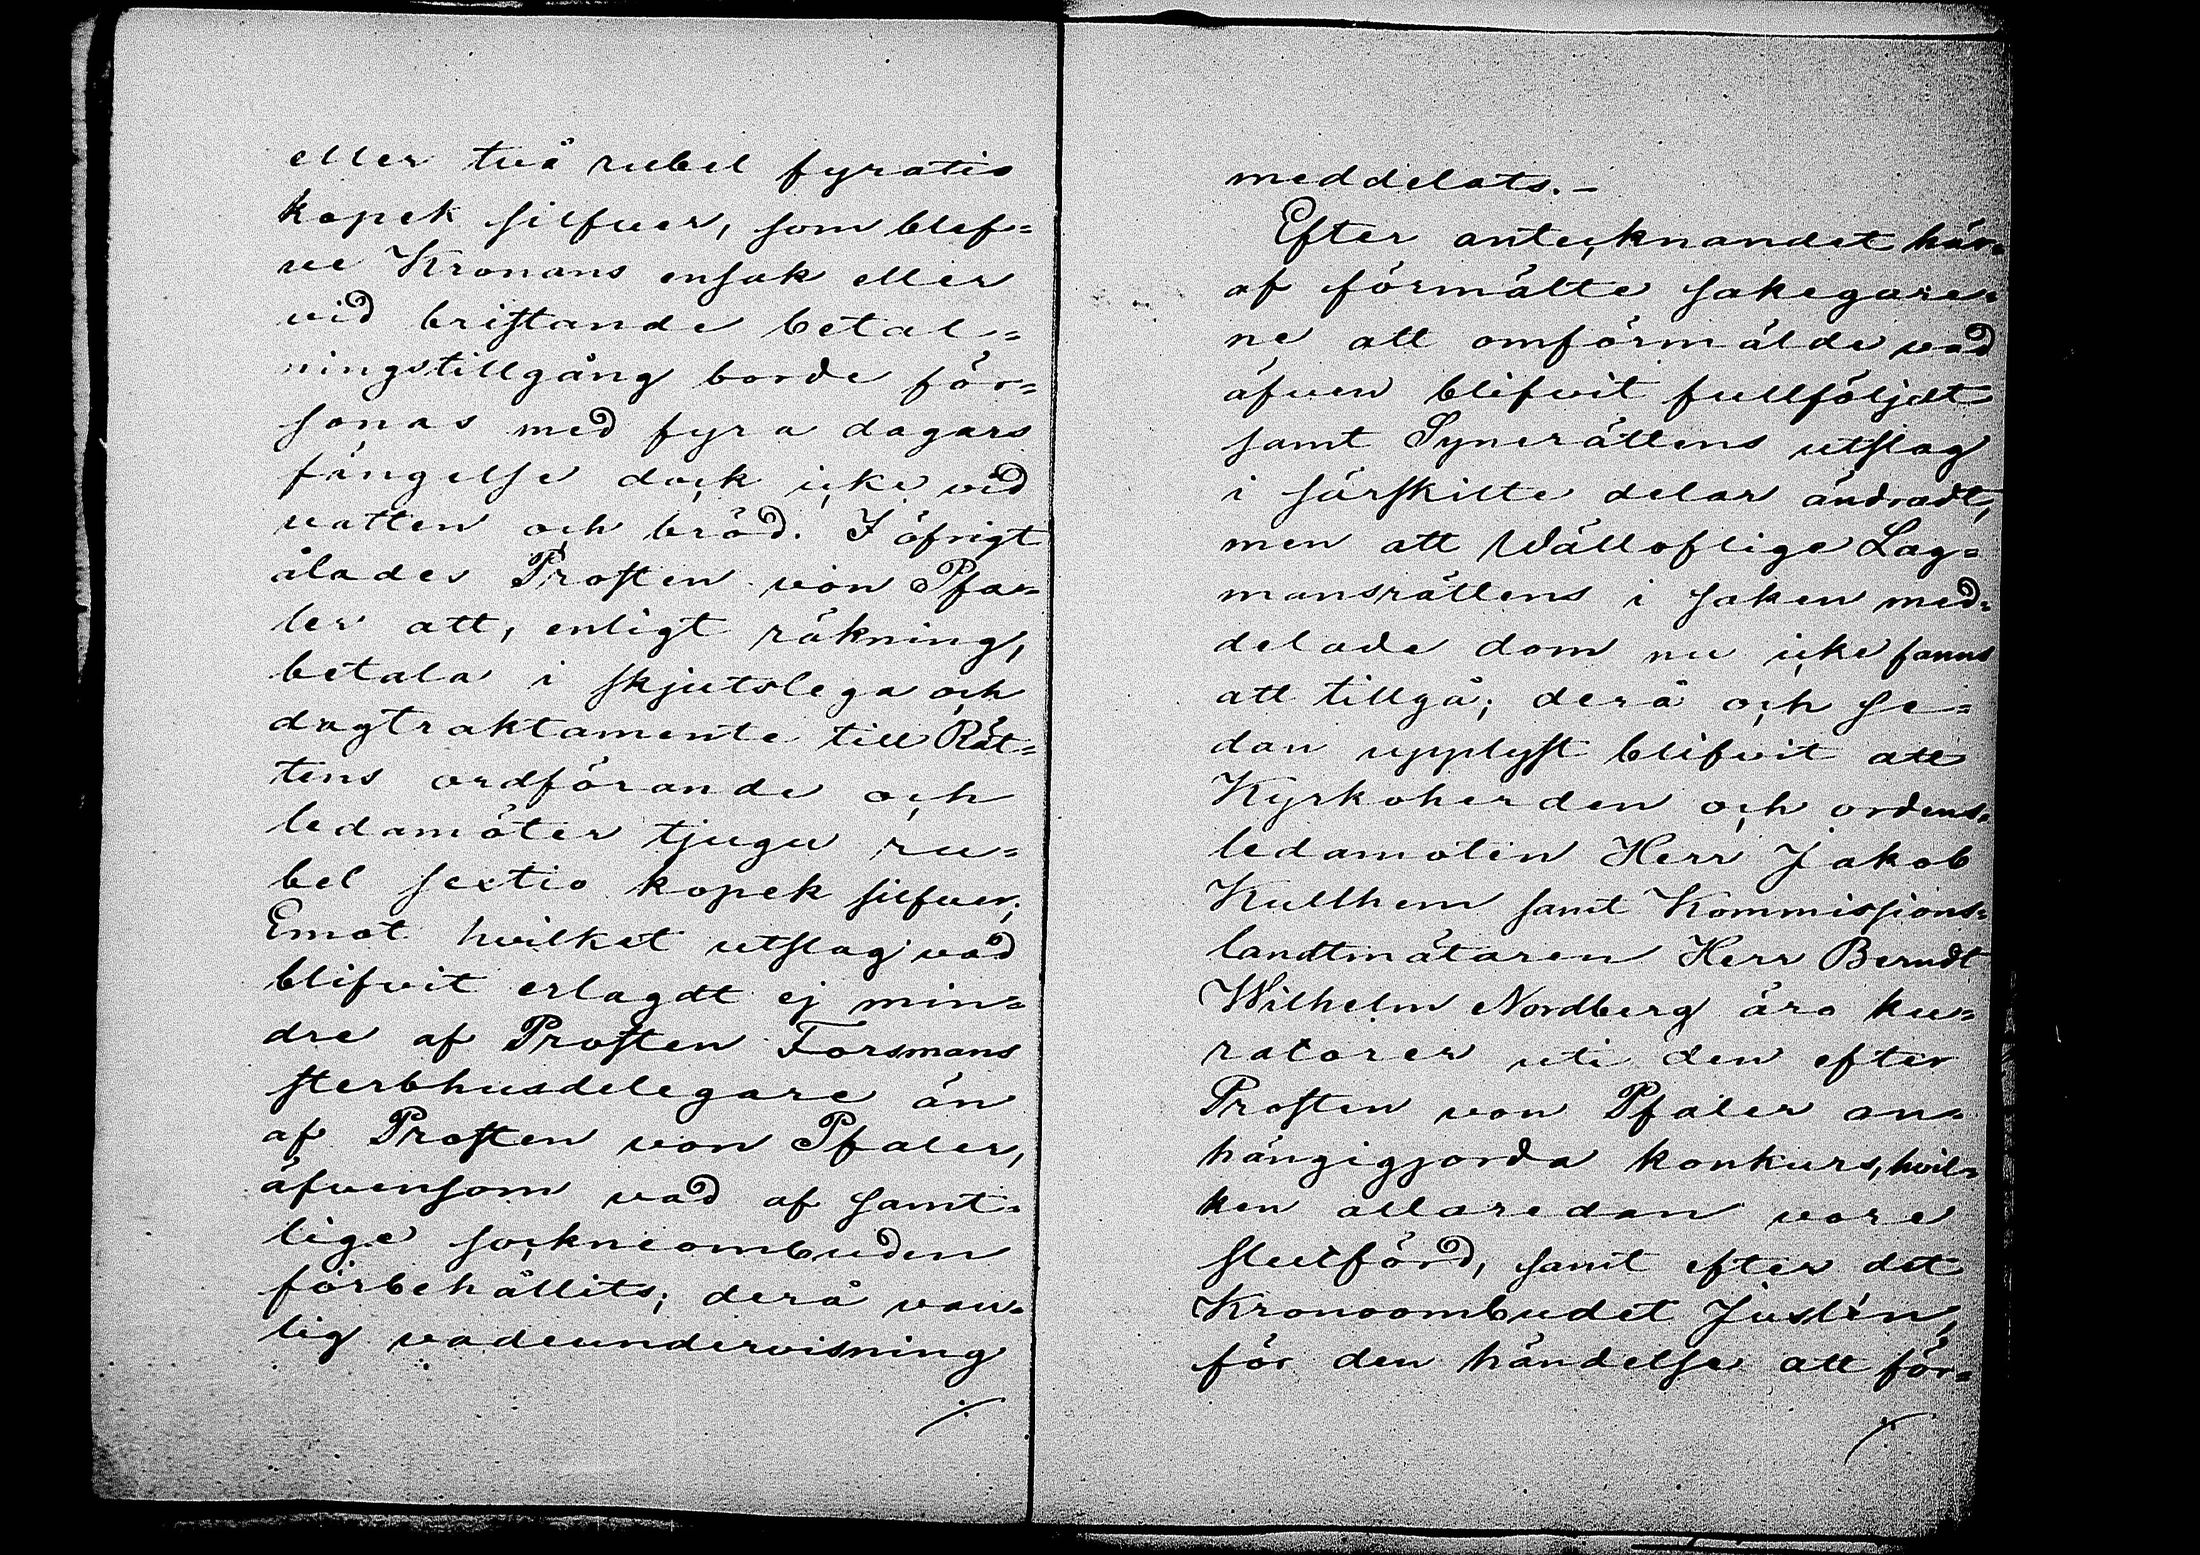 eller två rubel fyratio
kopek silfver, som blef=
ve Kronans ensak eller
vid bristande betal=
ningstillgång borde för=
sonas med fyra dagars
fängelse dock icke vid
vatten och bröd. I öfrigt
ålades Prosten von Pfa=
ler att, enligt räkning,
betala i skjutslega och
dagtraktamente till Rät=
tens ordförande och
ledamöter tjugu ru=
bel sextio kopek silfver;
Emot hvilket utslag vad
blifvit erlagdt ej min=
dre af Prosten Forsmans
sterbhusdelegare än
af Prosten von Pfaler,
äfvensom vad af samt=
lige sockneombuden
förbehållits; derå van=
lig vadeundervisning
./.
meddelats.-
Efter antecknandet här=
af förmälte sakegare=
ne att omförmälde vad
äfven blifvit fullföljdt
samt Synerättens utslag
i särskilte delar ändradt,
men att Wälloflige Lag=
mansrättens i saken med=
delade dom nu icke fanns
att tillgå; derå och se=
dan upplyst blifvit att
Kyrkoherden och ordens=
ledamoten Herr Jakob
Kullhem samt Kommissions=
landtmätaren Herr Berndt
Wilhelm Nordberg äro ku=
ratorer uti den efter
Prosten von Pfaler an=
hängiggjorda konkurs, hvil=
ken allaredan vore
slutförd, samt efter det
Kronoombudet Juslén,
för den händelse att för=
./.